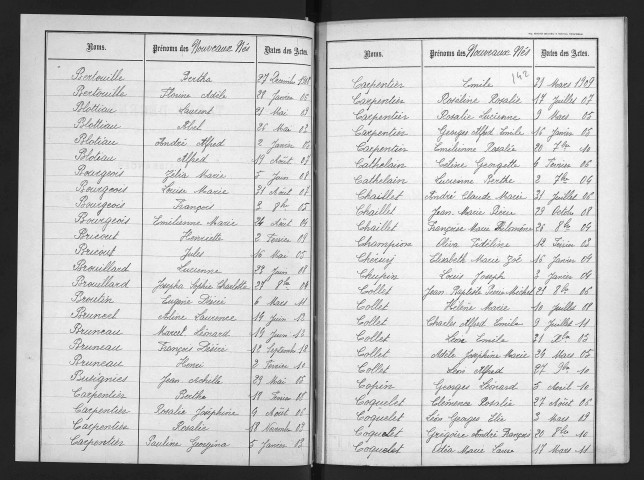 Noms. Prénoms des Nouveaux Nés Dates des Actes.
Bertouille Bertha 27 Décembre 1908
Bertouille Florine Adèle 28 Janvier 05
Blottiau Laurent 21 Mai 09
Blottiau Abel 26 Mai 07
Blotiau André Alfred 2 Janvier 06
Bloteau Alfred 19 Août 07
Bourgeois Zélia Marie 5 Juin 08
Bourgeois Louise Marie 31 Août 07
Bourgeois François 2 8bre 05
Bourgeois Emilienne Marie 24 Août 04
Bricout Henriette 2 Février 09
Bricout Jules 16 Mai 05
Brouillard Lucienne 28 Juin 08
Brouillard Josepha Sophie Charlotte 27 8bre 08
Broutin Eugène Désiré 6 Mars 11
Bruncel Aline Laurence 14 Juin 13
Bruneau Marcel Léonard 19 Juin 13
Bruneau François Désiré 12 Septembre 12
Bruneau Henri 2 Février 10
Busignies Jean Achille 23 Mai 05
Carpentier Berthe 18 Février 08
Carpentier Rosalie Joséphine 9 Août 06
Carpentier Rosalie 18 Novembre 03
Carpentier Pauline Georgina 5 Janvier 13
Noms. Prénoms des Nouveaux Nés Dates des Actes.
142
Carpentier Emile 31 Mars 1909
Carpentier Roseline Rosalie 17 Juillet 07
Carpentier Rosalie Lucienne 9 Mars 05
Carpentier Georges Alfred Emile 16 Janvier 05
Carpentier Emilienne Rosalie 20 7bre 10
Cathelain Céline Georgette 4 Février 06
Cathelain Lucienne Berthe 2 7bre 04
Chaillet André Claude Marie 31 Juillet 06
Chaillet Jean Marie Pierre 23 Octobre 08
Chaillet Françoise Marie Philomène 26 8bre 04
Champion Oliva Fidéline 14 Février 03
Elisabeth Marie Zoé 16 Janvier 09
Chopin Louis Joseph 3 Janvier 04
Collet Jean Baptiste Pierre Michel 28 8bre 06
Collet Hélène Marie 10 Juillet 08
Collet Charles Alfred Emile 9 Juillet 11
Collet Léon Emile 31 Xbre 03
Collet Adèle Joséphine Marie 26 Mars 05
Collet Léon Alfred 27 9bre 10
Copin Georges Léonard 5 Avril 10
Coquelet Clémence Rosalie 27 Août 06
Coquelet Léon Georges Elie 2 Mars 09
Coquelet Grégoire André François 20 8bre 10
Coquelet Célia Marie Laure 17 Mars 11